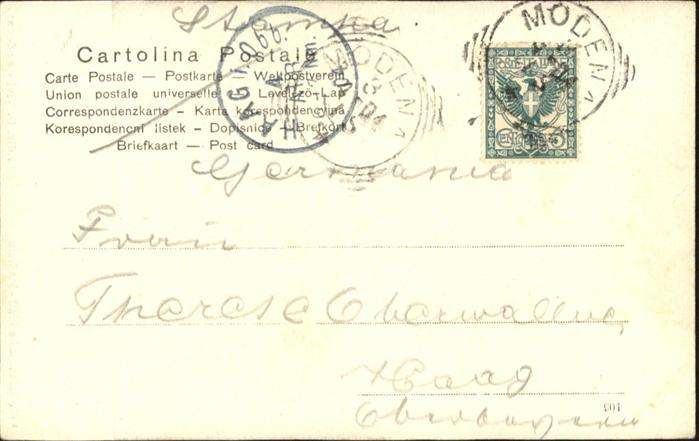 Stampa
Cartolina Postale
Carte Postale — Postkarte — Weltpostverein
Union postale universelle — Levelezö-Lap
Correspondenzkarte — Karta korespondencyjna
Korespondenčni listek — Dopisnice — Brefkort
Briefkaart — Post card
MODENA
04
MODENA
HAAG i. Obb.
Germania
Frau
Therese Oberwallner
Haag
Oberbayern
103